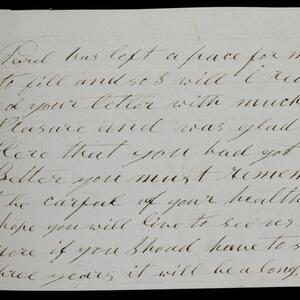 has left a pace for m
to fill and so I will I rec
ed your letter with much
Pleasure and was glad
Here that you had got
Better you must remem
be carful of your health
hope you will live to see us
more if you shoad have to s
three years it will be a long